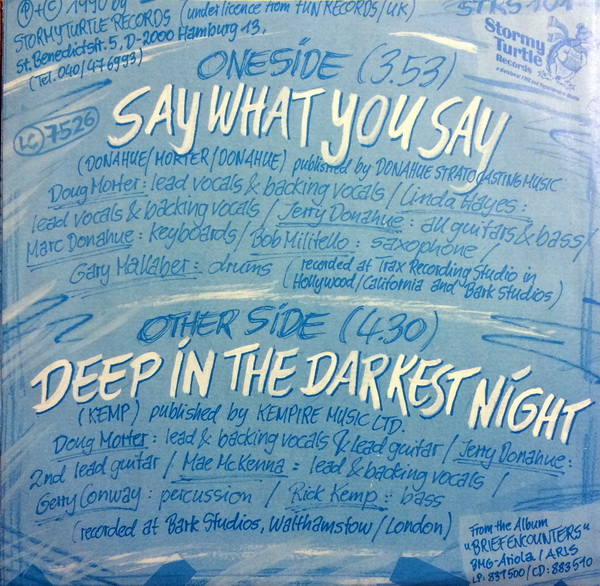 ℗+© 1990 by
STORMYTURTLE RECORDS (under licence from FUN RECORDS/UK)
St. Benedictstr. 5, D-2000 Hamburg 13,
(Tel. 040/476993)
STRS 101
Stormy
Turtle
Records
LC 7526
ONESIDE (3.53)
SAY WHAT YOU SAY
(DONAHUE/MORTER/DONAHUE) published by DONAHUE STRATOCASTING MUSIC
Doug Morter: lead vocals & backing vocals / Linda Hayes:
lead vocals & backing vocals / Jerry Donahue: all guitars & bass /
Marc Donahue: keyboards / Bob Militello: saxophone /
Gary Mallaber: drums (recorded at Trax Recording Studio in
Hollywood/California and Bark Studios)
OTHER SIDE (4.30)
DEEP IN THE DARKEST NIGHT
(KEMP) published by KEMPIRE MUSIC LTD.
Doug Morter: lead & backing vocals & lead guitar / Jerry Donahue:
2nd lead guitar / Mae McKenna: lead & backing vocals /
Gerry Conway: percussion / Rick Kemp: bass
(recorded at Bark Studios, Walthamstow/London)
From the Album
"BRIEF ENCOUNTERS"
BMG-Ariola / ARIS
LP: 837500 / CD: 883510